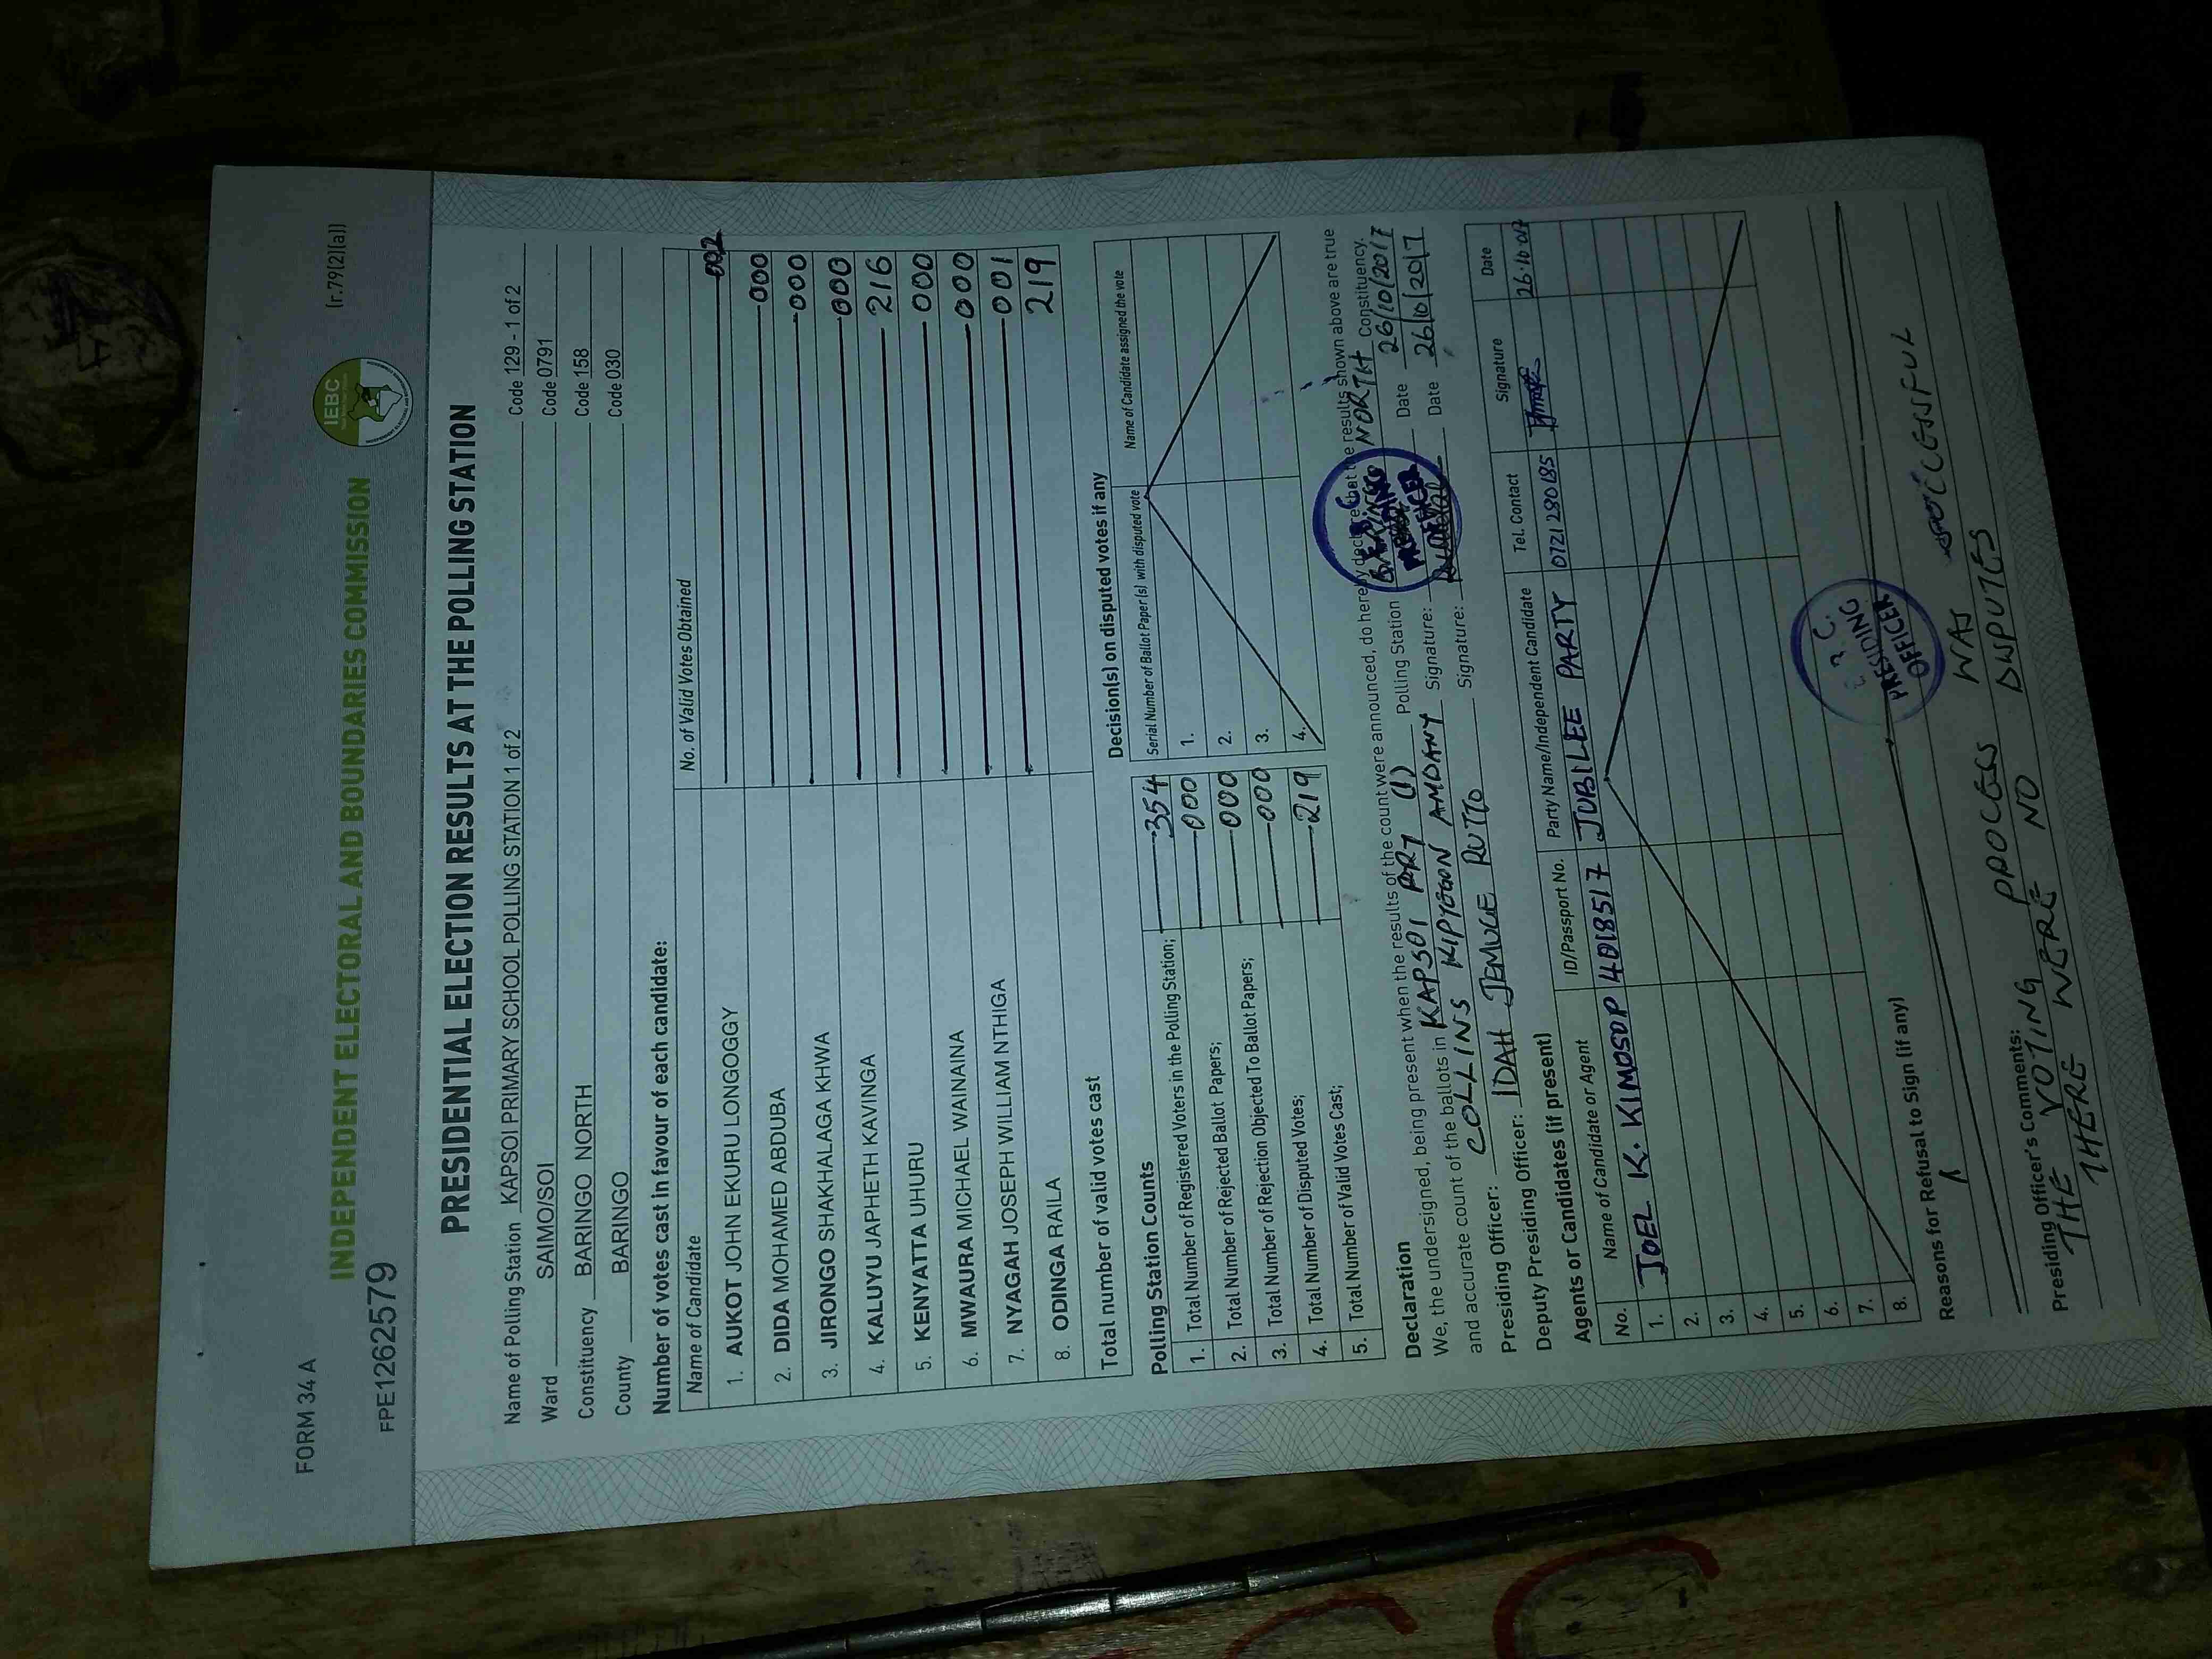 FORM 34 A
(r.79(2)(a))
IEBC
INDEPENDENT ELECTORAL AND BOUNDARIES COMMISSION
FPE1262579
PRESIDENTIAL ELECTION RESULTS AT THE POLLING STATION
Name of Polling Station KAPSOI PRIMARY SCHOOL POLLING STATION 1 of 2 Code 129 - 1 of 2
Ward SAIMO/SOI Code 0791
Constituency BARINGO NORTH Code 158
County BARINGO Code 030
Number of votes cast in favour of each candidate:
Name of Candidate No. of Valid Votes Obtained
1. AUKOT JOHN EKURU LONGOGGY 002
2. DIDA MOHAMED ABDUBA 000
3. JIRONGO SHAKHALAGA KHWA 000
4. KALUYU JAPHETH KAVINGA 000
5. KENYATTA UHURU 216
6. MWAURA MICHAEL WAINAINA 000
7. NYAGAH JOSEPH WILLIAM NTHIGA 000
8. ODINGA RAILA 001
Total number of valid votes cast 219
Polling Station Counts
1. Total Number of Registered Voters in the Polling Station; 354
2. Total Number of Rejected Ballot Papers; 000
3. Total Number of Rejection Objected To Ballot Papers; 000
4. Total Number of Disputed Votes; 000
5. Total Number of Valid Votes Cast; 219
Decision(s) on disputed votes if any
Serial Number of Ballot Paper (s) with disputed vote Name of Candidate assigned the vote
1.
2.
3.
4.
Declaration
We, the undersigned, being present when the results of the count were announced, do hereby declare that the results shown above are true
and accurate count of the ballots in KAPSOI PRY (1) Polling Station BARINGO NORTH Constituency.
Presiding Officer: COLLINS KIPYEGON AMDANY Signature: Date 26/10/2017
Deputy Presiding Officer: IDAH JEMUGE RUTTO Signature: Date 26/10/2017
PRESIDING
OFFICER
Agents or Candidates (if present)
No. Name of Candidate or Agent ID/Passport No. Party Name/Independent Candidate Tel. Contact Signature Date
1. JOEL K. KIMOSOP 4018517 JUBILEE PARTY 0721280185 26.10.017
2.
3.
4.
5.
6.
7.
8.
Reasons for Refusal to Sign (if any)
PRESIDING
OFFICER
Presiding Officer's Comments:
THE VOTING PROCESS WAS SUCCESSFUL
THERE WERE NO DISPUTES